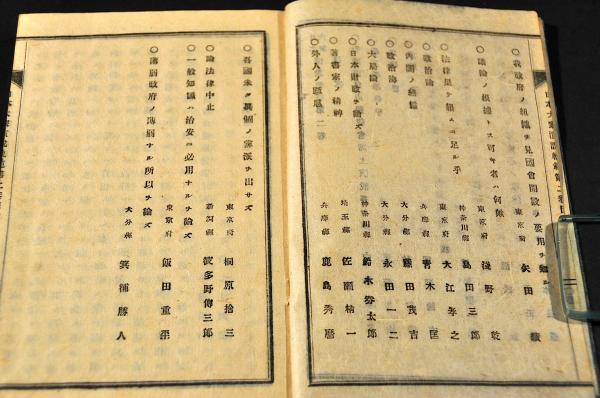 ○我政府ノ組織ヲ見國會開設ノ要用ヲ知ル
東京府 矢田
議論ノ根據トス可キ者ハ何歟
東京府 淺野 乾
神奈川縣 島田三郎
法律果テ頼ムニ足ル乎
大江孝之
○政治論
兵庫縣 青木 匡
○內閣ノ組織
大分縣 藤田茂吉
○政治海
大分縣 永田一二
○大局論
神奈川縣 鈴木券太郎
○日本財政ヲ論ズ
埼玉縣 佐瀬精一
○著書家ノ精神
兵庫縣 鹿島秀麿
○外人ノ
○吾國未タ眞個ノ黨派ヲ出サズ
東京府 桐原捨三
○論法律中止
新潟縣 波多野傳三郎
○一般知識ハ治安ニ必用ナルヲ論ズ
東京府 飯田重
○薄弱政府ノ薄弱ナル所以ヲ論ズ
大分縣 箕浦勝人